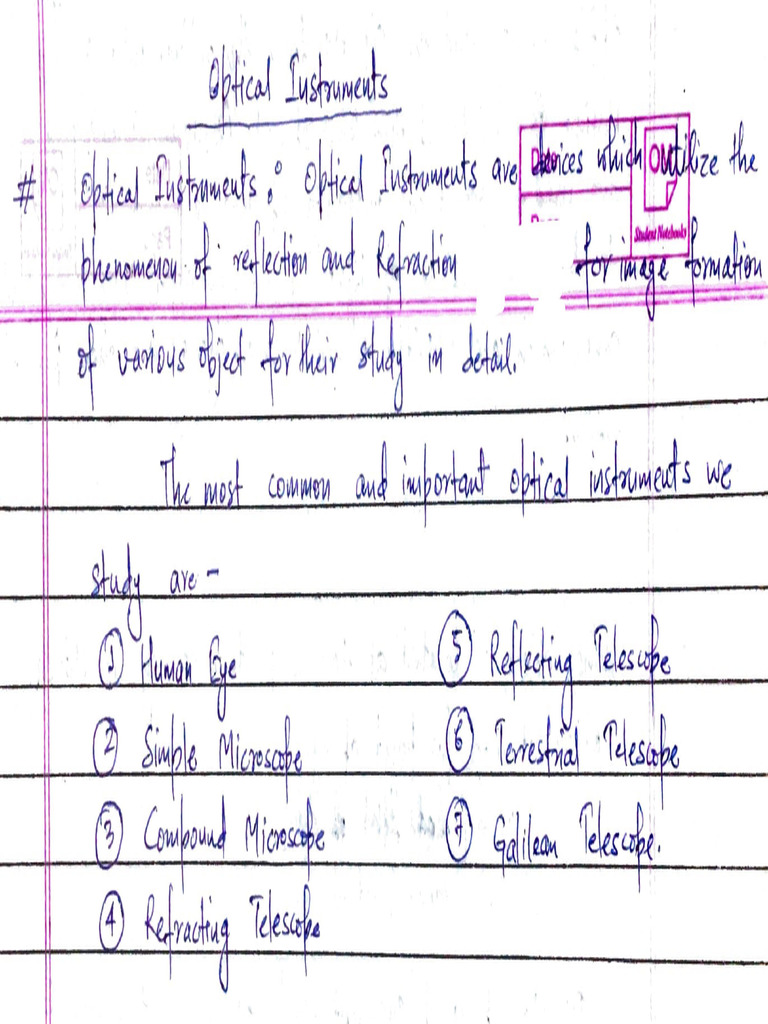 Optical Instruments
# Optical Instruments : Optical Instruments are devices which utilize the
phenomenon of reflection and Refraction for image formation
Student Notebooks
of various object for their study in detail.
The most common and important optical instruments we
study are -
① Human Eye
② Simple Microscope
③ Compound Microscope
④ Refracting Telescope
⑤ Reflecting Telescope
⑥ Terrestrial Telescope
⑦ Galilean Telescope.